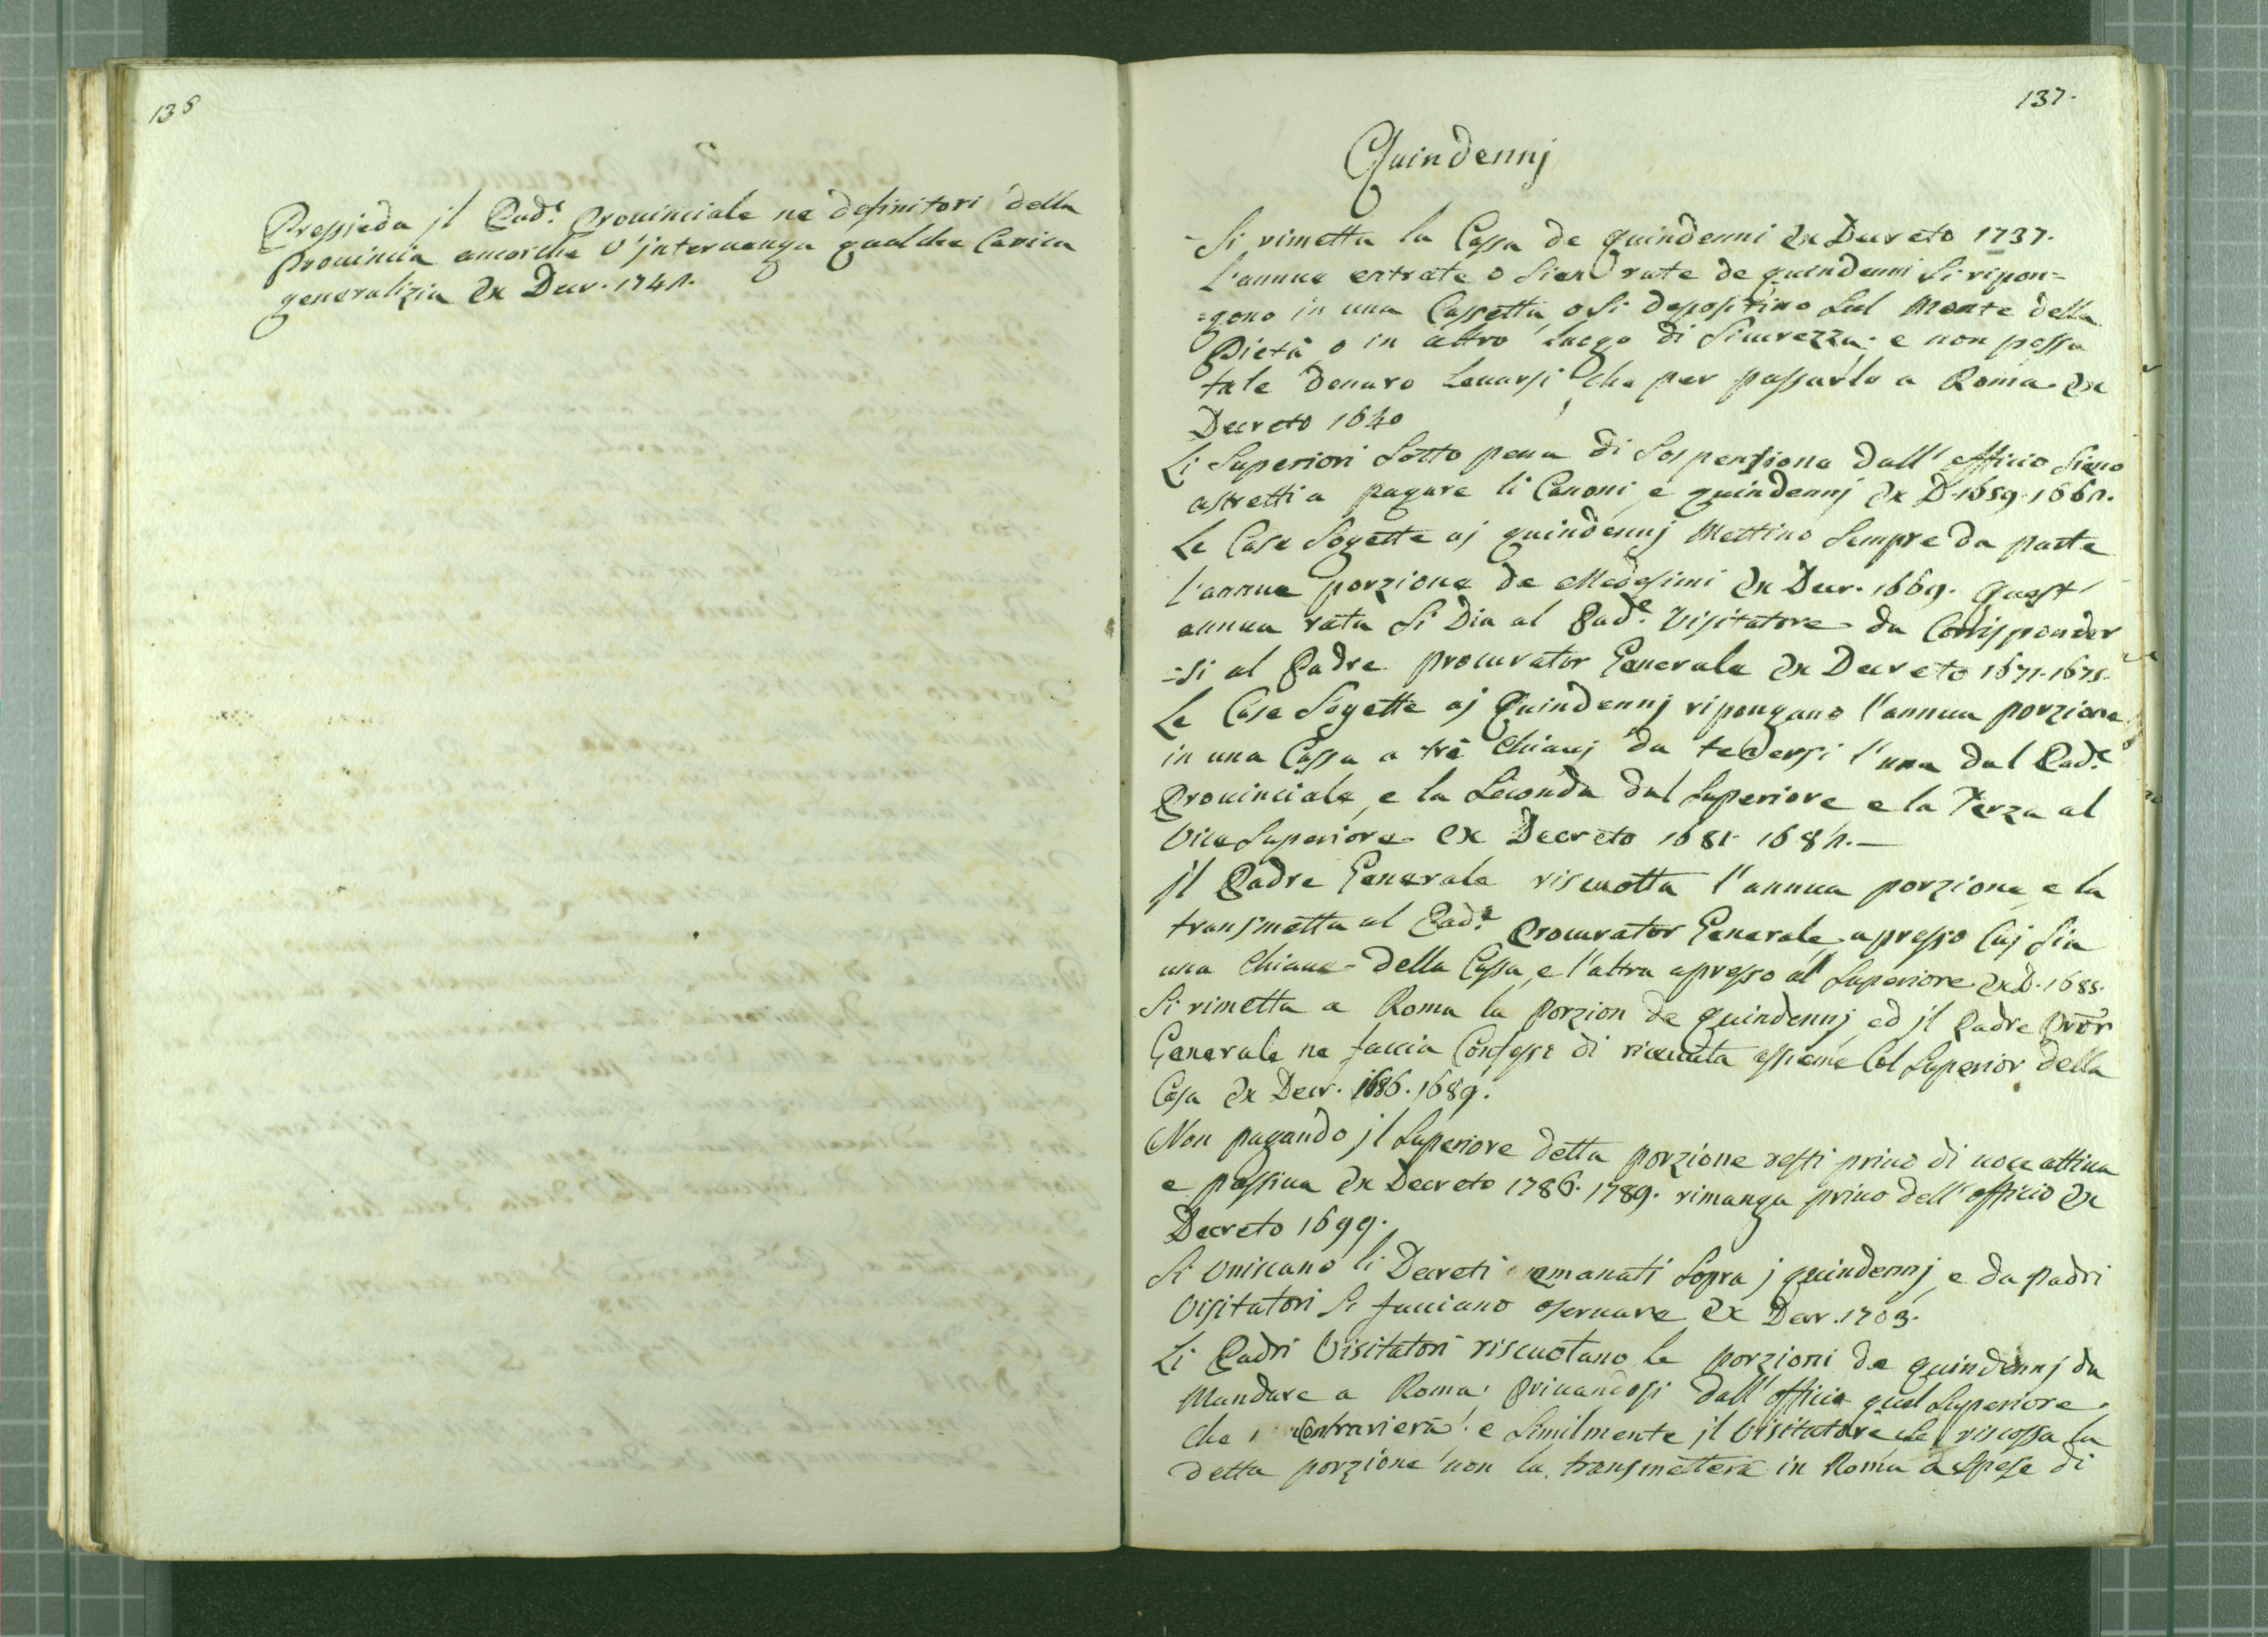 136
Pressieda jl Pad.e Prouinciale ne definitori della
Prouincia ancorche v'jnteruenga qualche Carica
generalizia Ex Decr. 1741.
137.
Quindennj
Si rimetta la Cassa de quindenni Ex Decreto 1737.
L'annue entrate o sian rate de quindenni si ripon=
=gono in una Cassetta, o si depositino sul Monte della
Pietà o in altro luogo di Sicurezza: e non possa
tale denaro leuarsi che per passarlo a Roma Ex
Decreto 1640
Li Superiori Sotto pena di Sospensione dall' officio sieno
astretti a pagare li Canoni, e quindennj Ex D. 1659. 1661.
Le Case Sogette aj quindennj Mettino Sempre da parte
l'annue porzione de Medesimi Ex Decr. 1669. Quest'
annua rata Si Dia al Pad.e Visitatore da Corrisponder
=si al Padre procurator Generale Ex Decreto 1671. 1675.
Le Case Sogette aj Quindennj ripongano l'annua porzione
in una Cassa a trè Chiauj da tenersi l'una dal Pad.e
Prouinciale, e la Seconda dal Superiore e la Terza al
Vice Superiore Ex Decreto 1681. 1681.—
jl Padre Generale riscuotta l'annua porzione e la
transmetta al Pad.e Procurator Generale, apresso Cuj Sia
una Chiaue della Cassa, e l'altra apresso al Superiore Ex D. 1685.
Si rimetta a Roma la Porzion de quindennj, ed jl Padre Pror
Generale ne faccia Confesse di riceuuta assieme Col Superior della
Casa Ex Decr. 1686. 1689.
Non pagando jl Superiore detta porzione resti priuo di uoce attiua
e passiua Ex Decreto 1786. 1789. rimanga priuo dell' officio Ex
Decreto 1699.
Si Vniscano li Decreti emanati Sopra j quindennj, e da Padri
Visitatori Si facciano oseruare Ex Decr. 1703.
Li Padri Visitatori riscuotano le porzioni de quindennj da
Mandare a Roma: priuandosi dall' officio quel Superiore
che Contravierà: e Similmente jl Visitatore che riscossa la
detta porzione non la transmetterà in Roma a Spese di